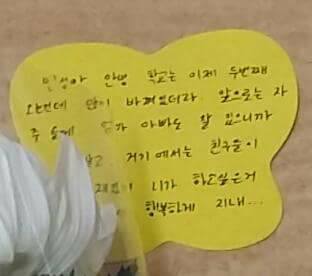 민성아 안녕 학교는 이제 두번째
오는건데 많이 바뀌었더라. 앞으로는 자
주 올게 엄마 아빠도 잘 있으니까
말고, 거기에서는 친구들이
니가 하고싶은거
행복하게 지내...